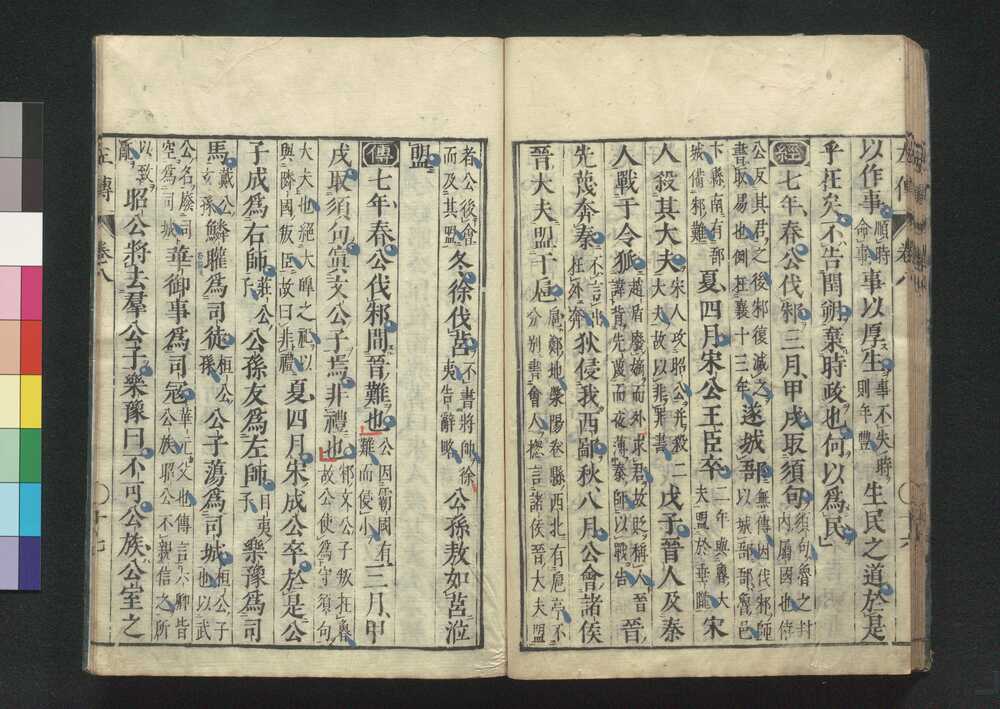 以作事順時命事事以厚生事不失時則年豐生民之道於是
乎在矣不告閏朔棄時政也何以爲民
經七年春公伐邾三月甲戌取須句須句魯之封內屬國也僖
公反其君之後邾復滅之書取易也例在襄十三年遂城郚無傳因伐邾師以城郚郚魯邑
卞縣南有郚城備邾難夏四月宋公王臣卒二年與魯大夫盟於垂隴宋
人殺其大夫宋人攻昭公并殺二大夫故以非罪書戊子晉人及秦
人戰于令狐趙盾廢嫡而外求君故貶稱人晉諱背先蔑而夜薄秦師以戰告晉
先蔑奔秦不言出在外奔狄侵我西鄙秋八月公會諸侯
晉大夫盟于扈扈鄭地滎陽卷縣西北有扈亭不分別書會人摠言諸侯晉大夫盟
者公後會而及其盟冬徐伐莒不書將帥徐夷告辭略公孫敖如莒涖
盟
傳七年春公伐邾間晉難也公因霸國有難而侵小三月甲
戌取須句寘文公子焉非禮也邾文公子叛在魯故公使爲守須句
大夫也絕大皞之祀以與隣國叛臣故曰非禮夏四月宋成公卒於是公
子成爲右師莊公子公孫友爲左師目夷子樂豫爲司
馬戴公玄孫鱗矔爲司徒桓公孫公子蕩爲司城桓公子也以武
公名廢司空爲司城華御事爲司寇華元父也傳言六卿皆公族昭公不親信之所
以致亂昭公將去羣公子樂豫曰不可公族公室之
左傳 卷八 十七